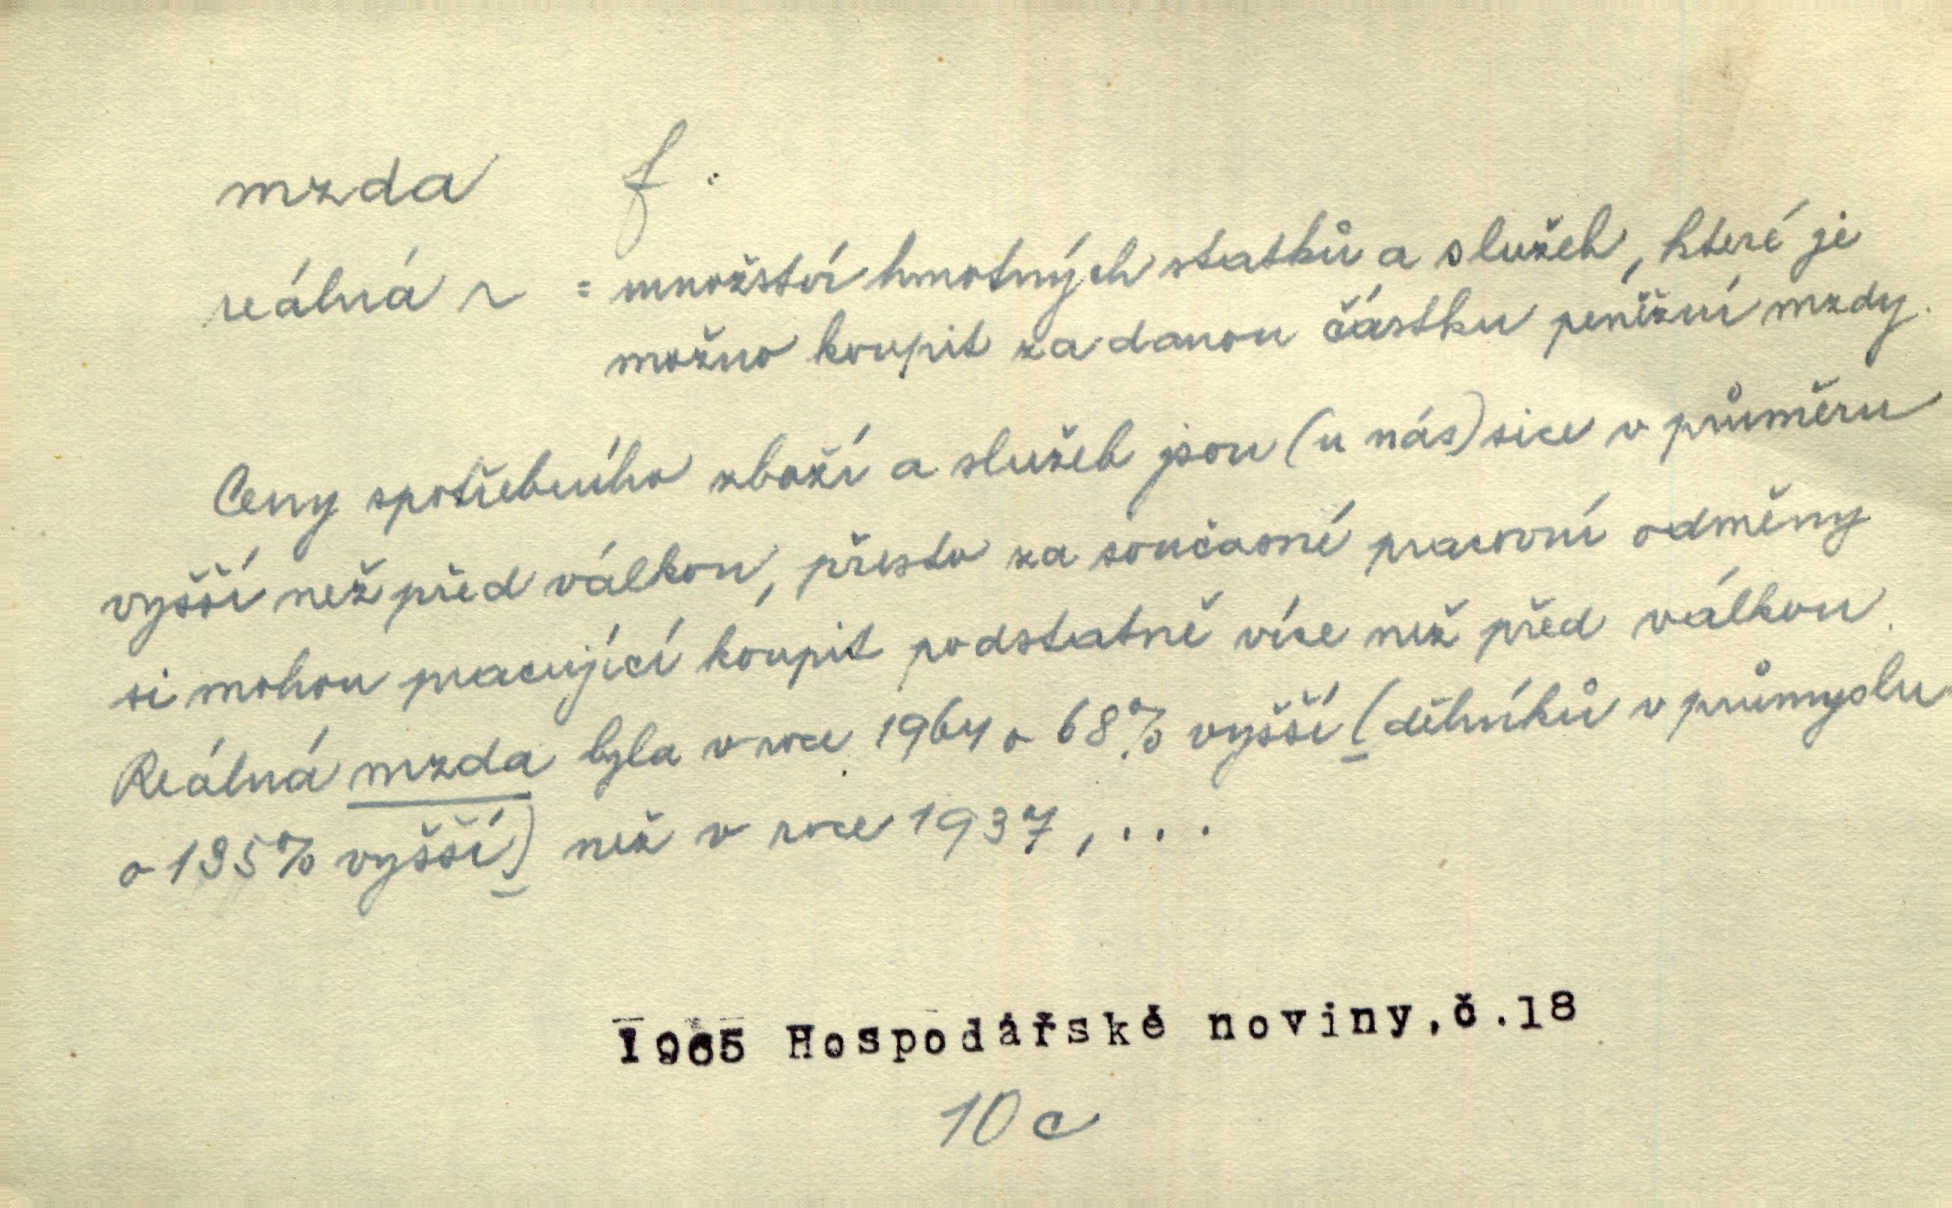 mzda f.
reálná ~ = množství hmotných statků a služeb, které je
možno koupit za danou částku peněžní mzdy.
Ceny spotřebního zboží a služeb jsou (u nás) sice v průměru
vyšší než před válkou, přesto za současné pracovní odměny
si mohou pracující koupit podstatně více než před válkou.
Reálná mzda byla v roce 1964 o 68% vyšší (dělníků v průmyslu
o 135% vyšší) než v roce 1937, ...
1965 Hospodářské noviny, č.18
10 c